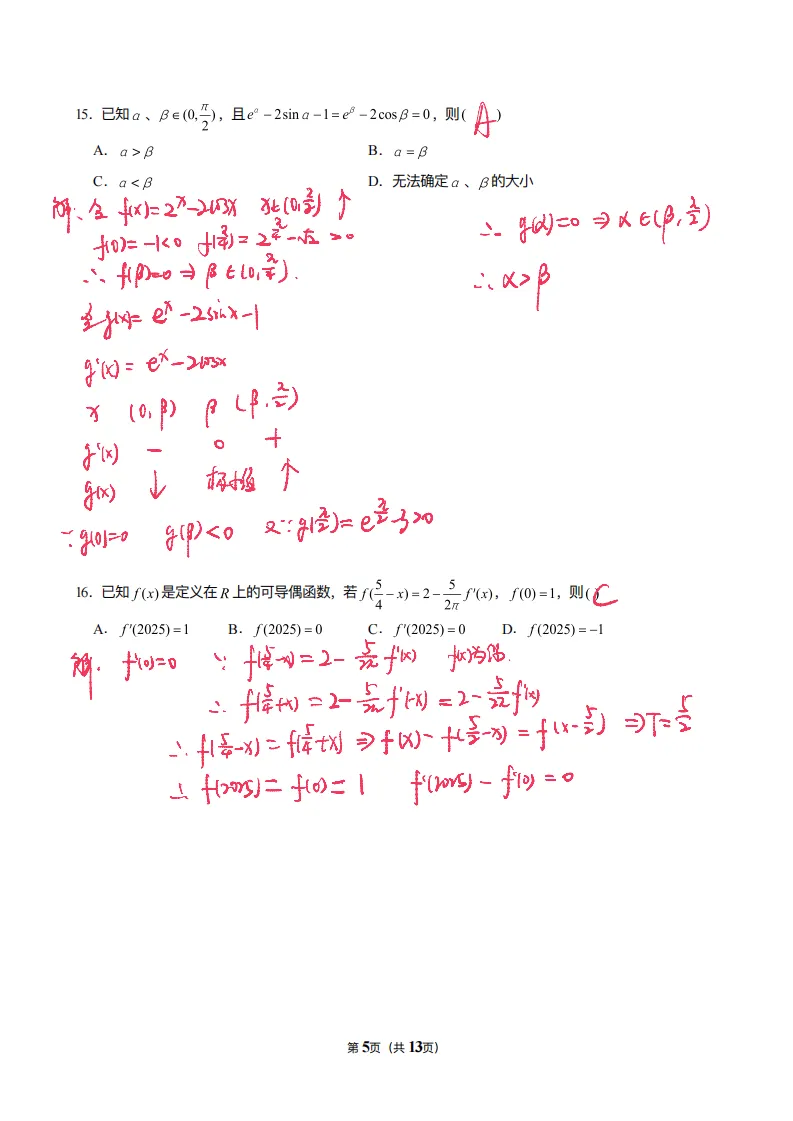 15. 已知α、β∈(0, π/2)，且e^α－2sinα－1＝e^β－2cosβ＝0，则( A )
A. α＞β B. α＝β
C. α＜β D. 无法确定α、β的大小
解: 令 f(x)=2^x-2cosx x∈(0,π/2) ↑
f(0)=-1<0 f(π/4)=2^(π/4)-√2 >0
∴ f(β)=0 ⇒ β∈(0,π/4).
令g(x)= e^x-2sinx-1
g'(x)= e^x-2cosx
x (0,β) β (β,π/2)
g'(x) - 0 +
g(x) ↓ 极小值 ↑
∵g(0)=0 g(β)<0 又∵g(π/2)=e^(π/2)-3>0
∴ g(α)=0 ⇒ α∈(β,π/2)
∴ α>β
16. 已知 f(x)是定义在R上的可导偶函数，若 f(5/4－x)＝2－5/(2π) f′(x)，f(0)＝1，则( C )
A. f′(2025)＝1 B. f(2025)＝0 C. f′(2025)＝0 D. f(2025)＝－1
解. f'(0)=0 ∵ f(5/4-x)=2-5/2π f'(x) f(x)为偶.
∴ f(5/4+x)=2-5/2π f'(-x)=2-5/2π f'(x)
∴ f(5/4-x)=f(5/4+x) ⇒ f(x)-f(5/2-x)=f(x-5/2) ⇒T=5/2
∴ f(2025)=f(0)=1 f'(2025)-f'(0)=0
第 5页（共 13页）